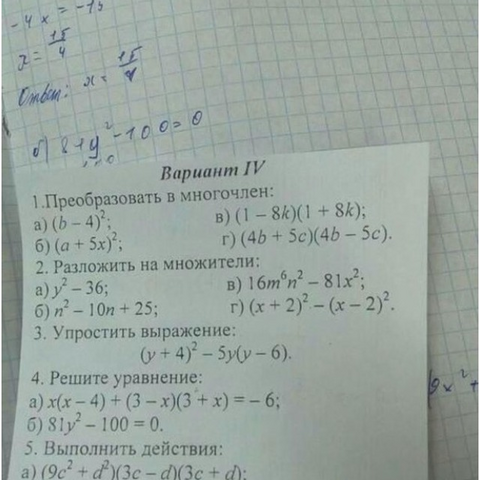 -4x = -15
x = 15/4
Ответ: x = 15/4
б) 81y² - 100 = 0
Вариант IV
1.Преобразовать в многочлен:
а) (b – 4)²; в) (1 – 8k)(1 + 8k);
б) (a + 5x)²; г) (4b + 5c)(4b – 5c).
2. Разложить на множители:
а) y² – 36; в) 16m⁶n² – 81x²;
б) n² – 10n + 25; г) (x + 2)² – (x – 2)².
3. Упростить выражение:
(y + 4)² – 5y(y – 6).
4. Решите уравнение:
а) x(x – 4) + (3 – x)(3 + x) = – 6;
б) 81y² – 100 = 0.
5. Выполнить действия:
а) (9c² + d²)(3c – d)(3c + d);